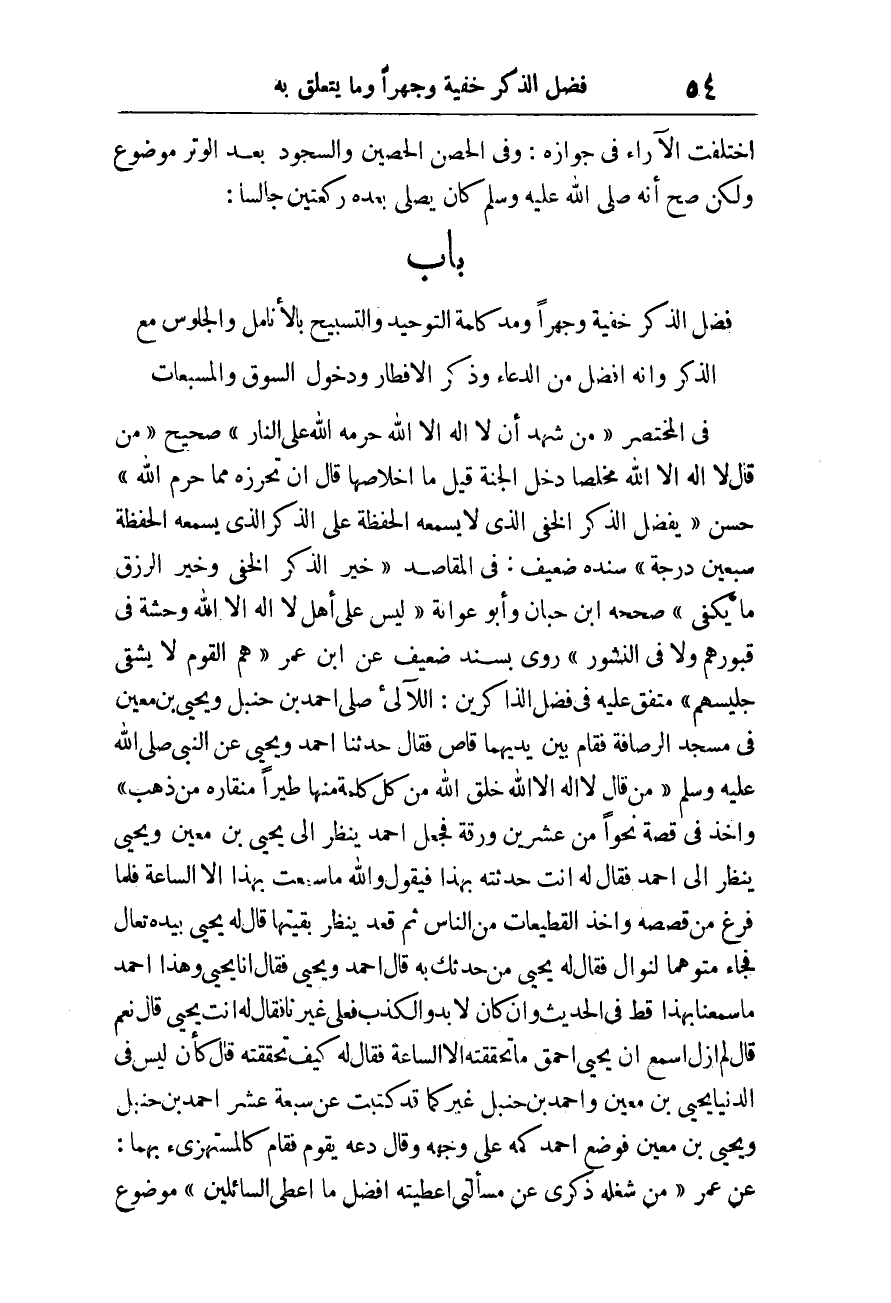 ٥٤ فضل الذكر خفية وجهراً وما يتعلق به
اختلفت الآراء فى جوازه : وفى الحصن الحصين والسجود بعد الوتر موضوع
ولكن صح أنه صلى الله عليه وسلم كان يصلى بعده ركعتين جالسا :
باب
فضل الذكر خفية وجهراً ومد كلمة التوحيد والتسبيح بالأنامل والجلوس مع
الذكر وانه افضل من الدعاء وذكر الافطار ودخول السوق والمسبعات
فى المختصر « من شهد أن لا اله الا الله حرمه الله على النار » صحيح « من
قال لا اله الا الله مخلصا دخل الجنة قيل ما اخلاصها قال ان تحرزه مما حرم الله »
حسن « يفضل الذكر الخفى الذى لا يسمعه الحفظة على الذكر الذى يسمعه الحفظة
سبعين درجة » سنده ضعيف : فى المقاصد « خير الذكر الخفى وخير الرزق
ما يكفى » صححه ابن حبان وأبو عوانة « ليس على أهل لا اله الا الله وحشة فى
قبورهم ولا فى النشور » روى بسند ضعيف عن ابن عمر « هم القوم لا يشقى
جليسهم » متفق عليه فى فضل الذاكرين : اللآلىء صلى احمد بن حنبل ويحيى بن معين
فى مسجد الرصافة فقام بين يديهما قاص فقال حدثنا احمد ويحيى عن النبى صلى الله
عليه وسلم « من قال لا اله الا الله خلق الله من كل كلمة منها طيراً منقاره من ذهب »
واخذ فى قصة نحواً من عشرين ورقة فجعل احمد ينظر الى يحيى بن معين ويحيى
ينظر الى احمد فقال له انت حدثته بهذا فيقول والله ما سمعت بهذا الا الساعة فلما
فرغ من قصصه واخذ القطيعات من الناس ثم قعد ينظر بقيتها قال له يحيى بيده تعال
فجاء متوهما لنوال فقال له يحيى من حدثك به قال احمد ويحيى فقال انا يحيى وهذا احمد
ما سمعنا بهذا قط فى الحديث وان كان لا بد والكذب فعلى غيرنا فقال له انت يحيى قال نعم
قال لم ازل اسمع ان يحيى احمق ما تحققته الا الساعة فقال له كيف تحققته قال كأن ليس فى
الدنيا يحيى بن معين واحمد بن حنبل غيركما قد كتبت عن سبعة عشر احمد بن حنبل
ويحيى بن معين فوضع احمد كمه على وجهه وقال دعه يقوم فقام كالمستهزىء بهما :
عن عمر « من شغله ذكرى عن مسألتى اعطيته افضل ما اعطى السائلين » موضوع